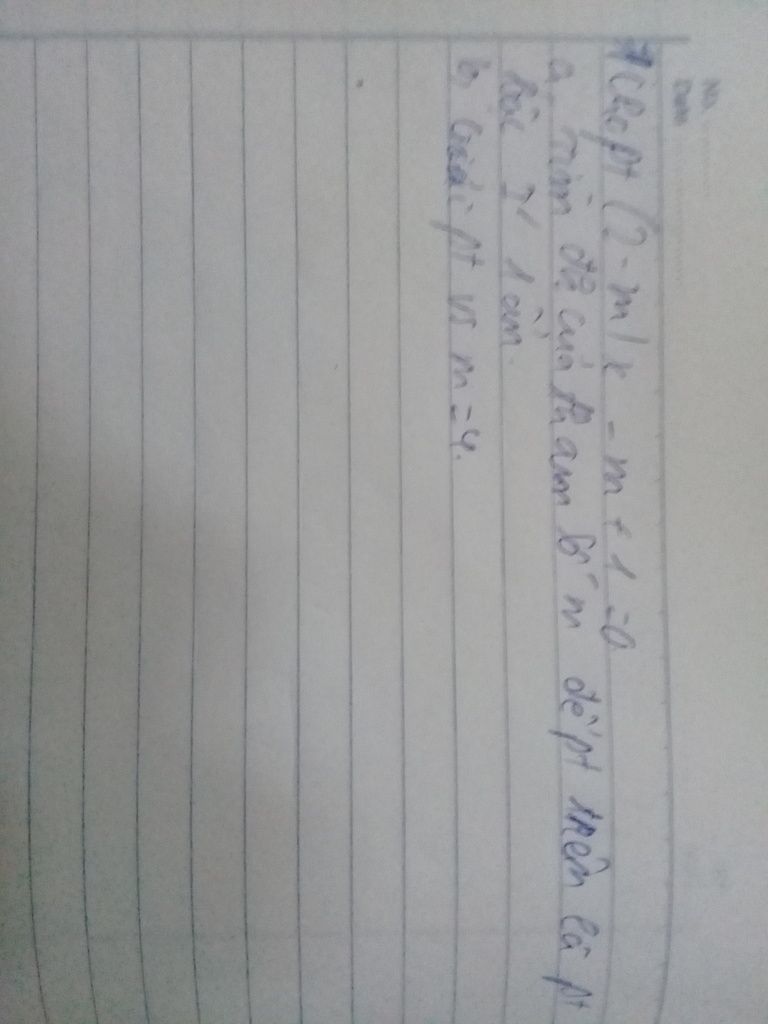 No.
Date
Cho pt (2-m)x - m + 1 = 0
a, Tìm đk của tham số m để pt trên là pt
bậc I 1 ẩn.
b, Giải pt vs m = 4.